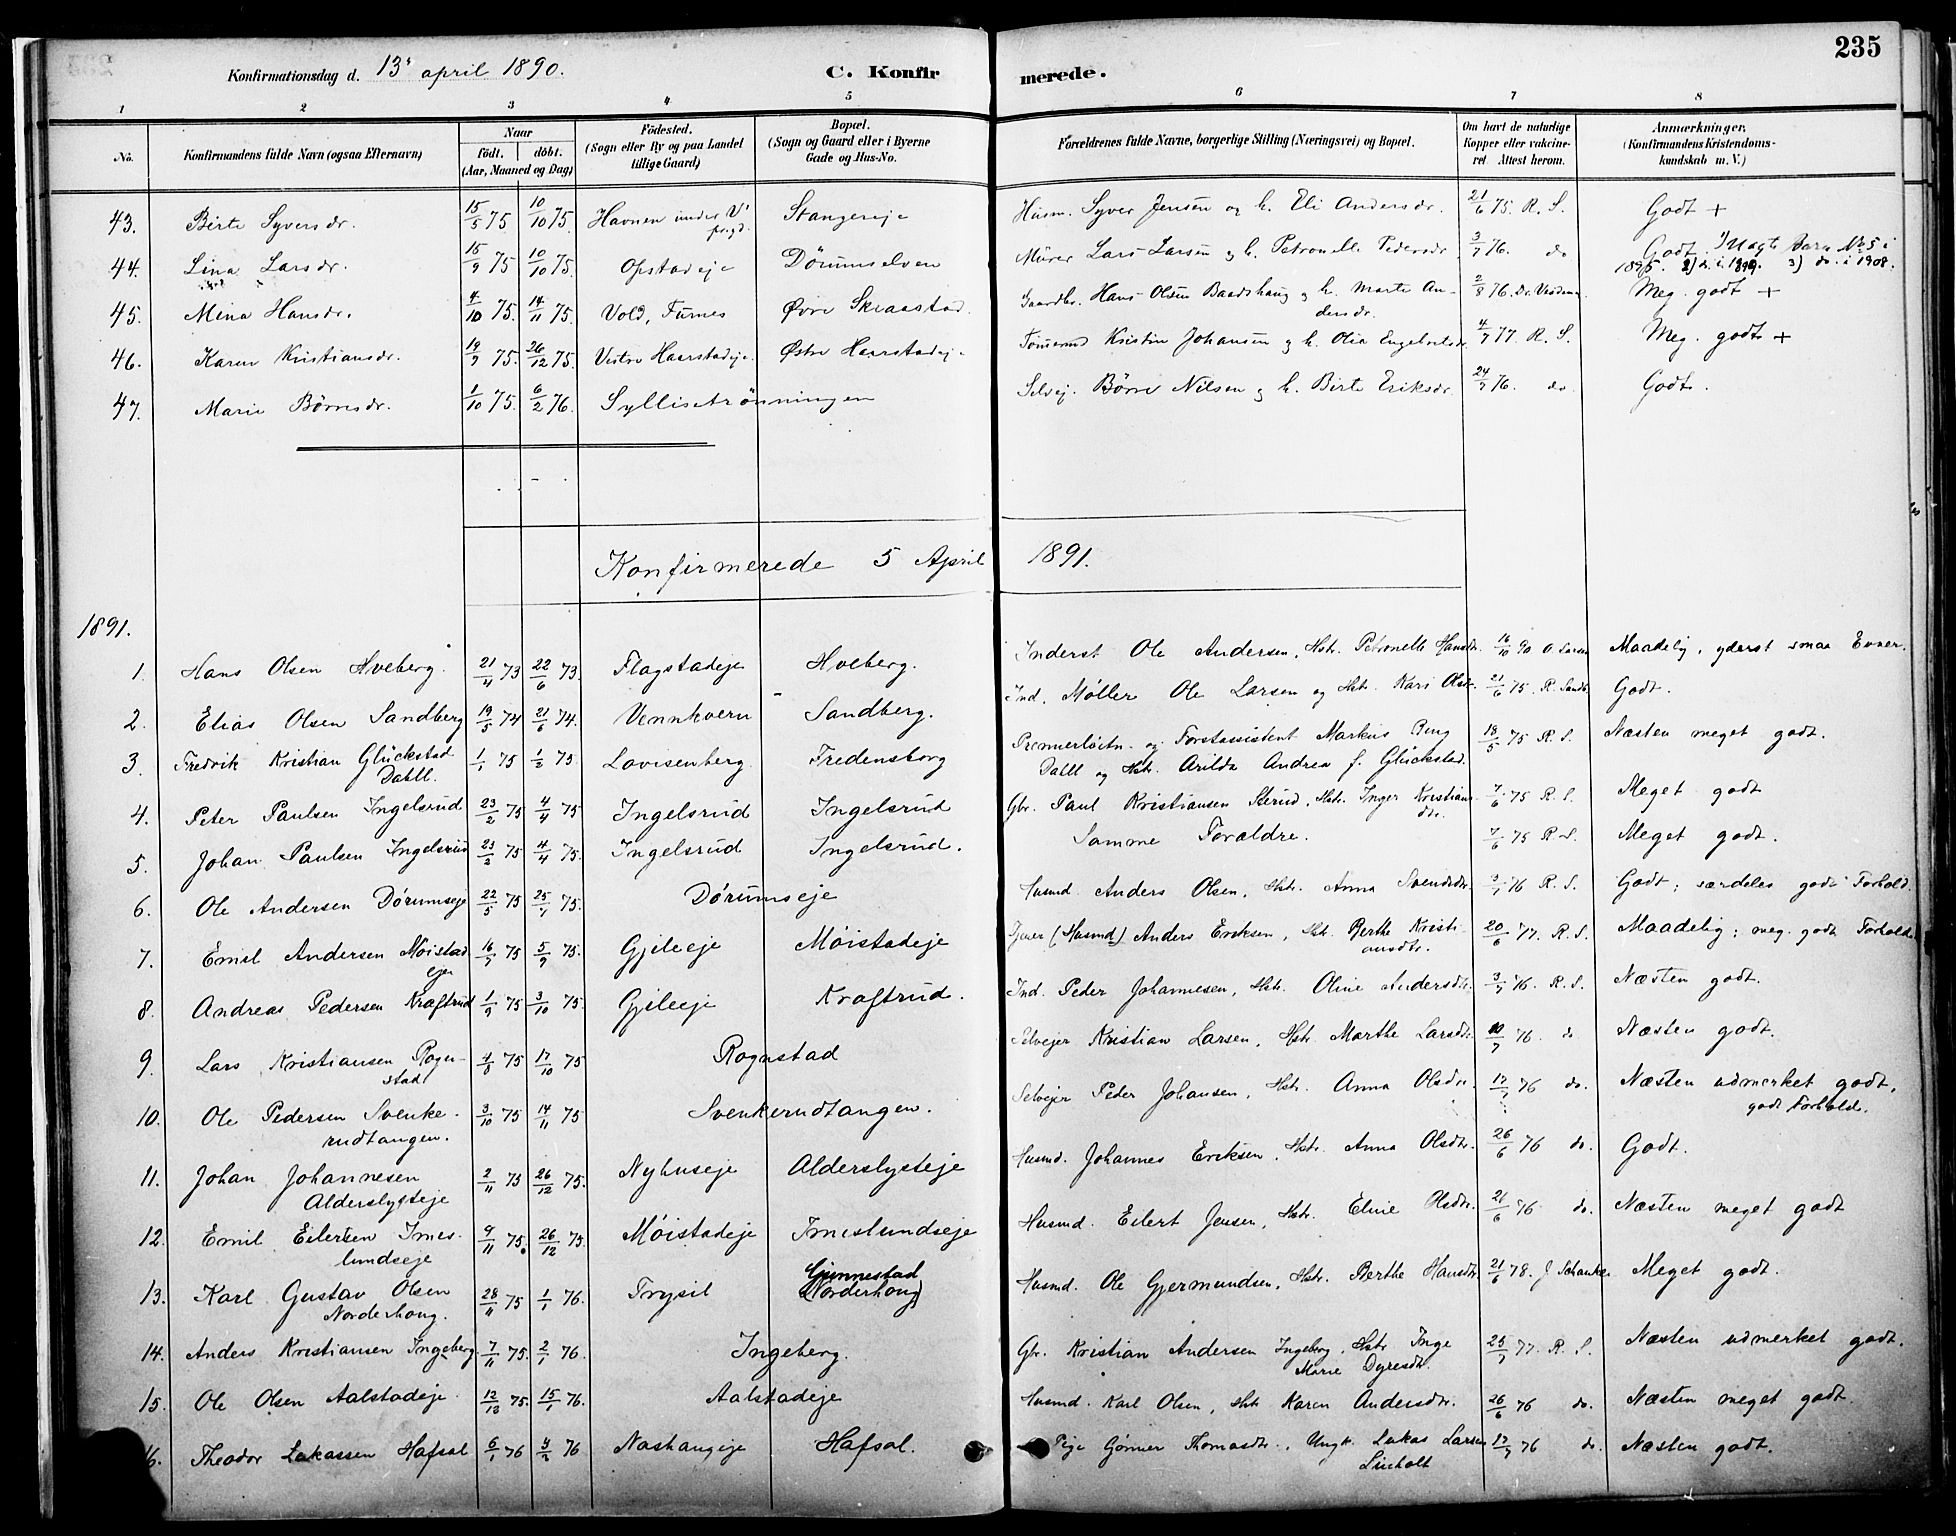 235
Konfirmationsdag d. 13' april 1890. C. Konfirmerede.
1 2 3 4 5 6 7 8
No. Konfirmandens fulde Navn (ogsaa Efternavn) Naar födt. döbt. (Aar, Maaned og Dag) Födested. (Sogn eller By og paa Landet tillige Gaard) Bopæl. (Sogn og Gaard eller i Byerne Gade og Hus-No. Forældrenes fulde Navne, borgerlige Stilling (Næringsvei) og Bopæl. Om havt de naturlige Kopper eller vakcineret. Attest herom. Anmærkninger. (Konfirmandens Kristendomskundskab m. V.)
43. Birte Syversdr. 15/5 75 10/10 75 Havnen under Stangeseje Husm. Syver Jensen og h. Eli Andersdr. 21/6 75. R. S. Godt +
44. Lina Larsdr. 15/9 75 10/10 75. Opstadeje Dørumselven Murer Lars Larsen og h. Petronelle Pedersdr. 3/7 76. do Godt. 1) Uægte Barn No 5 i
1895. 3) do. i 1908.
45. Mina Hansdr. 4/10 75. 14/11 75. Vold, Furnes Øvre Skraastad. Gaardbr. Hans Olsen Baadshaug og h. Marte An- 2/8 76. Meg. godt +
dersdr.
46. Karen Kristiansdr. 19/9 75. 26/12 75. Vestre Haarstadeje. Østre Haarstadeje Tømmermd Kristin Johansen og h. Olia Engebretsdr. 4/7 77. R. S. Meg. godt +
47. Marie Børresdr. 1/10 75. 6/2 76. Syllisetrønningen Selvej. Børre Nilsen og h. Birte Eriksdr. 24/7 76. do Godt.
Konfirmerede 5 April 1891.
1891.
1. Hans Olsen Hveberg. 21/4 73 22/6 73. Flagstadeje Hveberg. Inderst Ole Andersen, Hstr. Petronelle Hansdtr. 16/10 90 O Larsen Maadelig, yderst smaa Evner.
2. Elias Olsen Sandberg 19/5 74 21/6 74. Vennkvern Sandberg. Ind. Møller Ole Larsen og Hstr. Kari Olsdtr. 21/6 75. R. Sandb. Godt.
3. Fredrik Kristian Glückstad 1/1 75 1/2 75. Lovisenberg Fredensborg Premierløitn. og Forstassistent Markus Ring 18/5 75 R. S. Næsten meget godt.
Dahll Dahll og Hstr. Arilda Andrea f. Glückstad.
4. Peter Paulsen Ingelsrud 23/2 75 4/4 75 Ingelsrud Ingelsrud Gbr. Paul Kristiansen Sterud, Hstr. Inger Kristians- 7/6 75 R. S. Meget godt
dtr.
5. Johan Paulsen Ingelsrud 23/2 75 4/4 75. Ingelsrud Ingelsrud. Samme Forældre. 7/6 75 R. S. Meget godt.
6. Ole Andersen Dørumseje 22/5 75 25/7 75. Dørumseje Husmd. Anders Olsen, Hstr. Anna Svendsdtr. 3/7 76 R. S. Godt; særdeles godt Forhold.
7. Emil Andersen Møistad- 16/7 75 5/9 75. Gjileeje Møistadeje Gjører (Husmd) Anders Eriksen, Hstr. Berthe Kristi- 20/6 77. R. S. Maadelig; meg. godt Forhold.
eje ansdtr.
8. Andreas Pedersen Kraftrud 1/9 75 3/10 75. Gjileeje Kraftrud. Ind. Peder Johannesen, Hstr. Oline Andersdtr. 3/7 76. R. S. Næsten godt.
9. Lars Kristiansen Rogn- 4/8 75 17/10 75 Rognstad Selvejer Kristian Larsen, Hstr. Marthe Larsdtr. 10/7 76. do Næsten godt.
stad
10. Ole Pedersen Svenke- 3/10 75 14/11 75 Svenkerudtangen. Selvejer Peder Johansen, Hstr. Anna Olsdtr. 17/7 76 do. Næsten udmerket godt,
rudtangen. godt Forhold.
11. Johan Johannesen 2/11 75 26/12 75. Nyhuseje Alderslysteje Husmd. Johannes Eriksen, Hstr. Anna Olsdtr. 26/6 76 do. Godt.
Alderslysteje
12. Emil Eilertsen Imes- 9/11 75. 26/12 75. Møistadeje Imeslundseje Husmd. Eilert Jensen, Hstr. Eline Olsdtr. 21/6 76 do. Næsten meget godt
lundseje
13. Karl Gustav Olsen 28/11 75 1/1 76. Trysil Gunnestad (Norderhoug) Husmd. Ole Gjermundsen, Hstr. Berthe Hansdtr. 21/6 78. J Schanke Meget godt.
Norderhoug.
14. Anders Kristiansen Ingeberg 7/11 75. 2/1 76. Ingeberg. Gbr. Kristian Andersen Ingeberg, Hstr. Inge 25/7 77. R. S. Næsten udmerket godt.
Marie Dyresdtr.
15. Ole Olsen Aalstadeje 12/12 75. 15/1 76. Aalstadeje Husmd. Karl Olsen, Hstr. Karen Andersdtr. 26/6 76 do. Næsten meget godt.
16. Theodor Lukassen Hafsal 6/1 76 4/2 76 Nashaugeje Hafsal. Pige Gønner Thomasdtr., Ungk. Lukas Larsen 17/7 76 do. Næsten godt.
Linholt